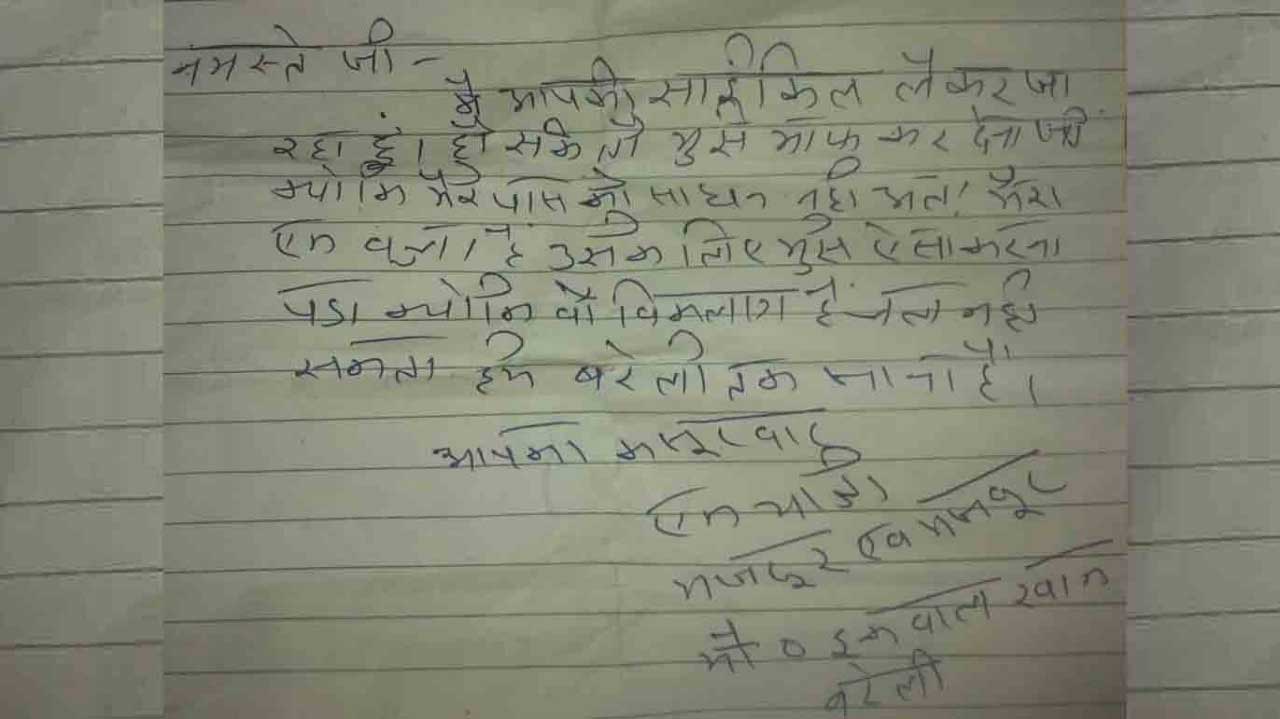 नमस्ते जी -
मै आपकी साईकिल लेकर जा
रहा हूं। हो सके तो मुझे माफ कर देना जी
क्योकि मेरे पास को साधन नही अत! मेरा
एक बच्चा है उसके लिए मुझे ऐसा करना
पडा क्योकि वो विकलाग है चल नही
सकता हमे बरेली तक जाना है।
आपका कसूरवार
एक यात्री
मजदूर एवं मजबूर
मो० इकबाल खान
बरेली